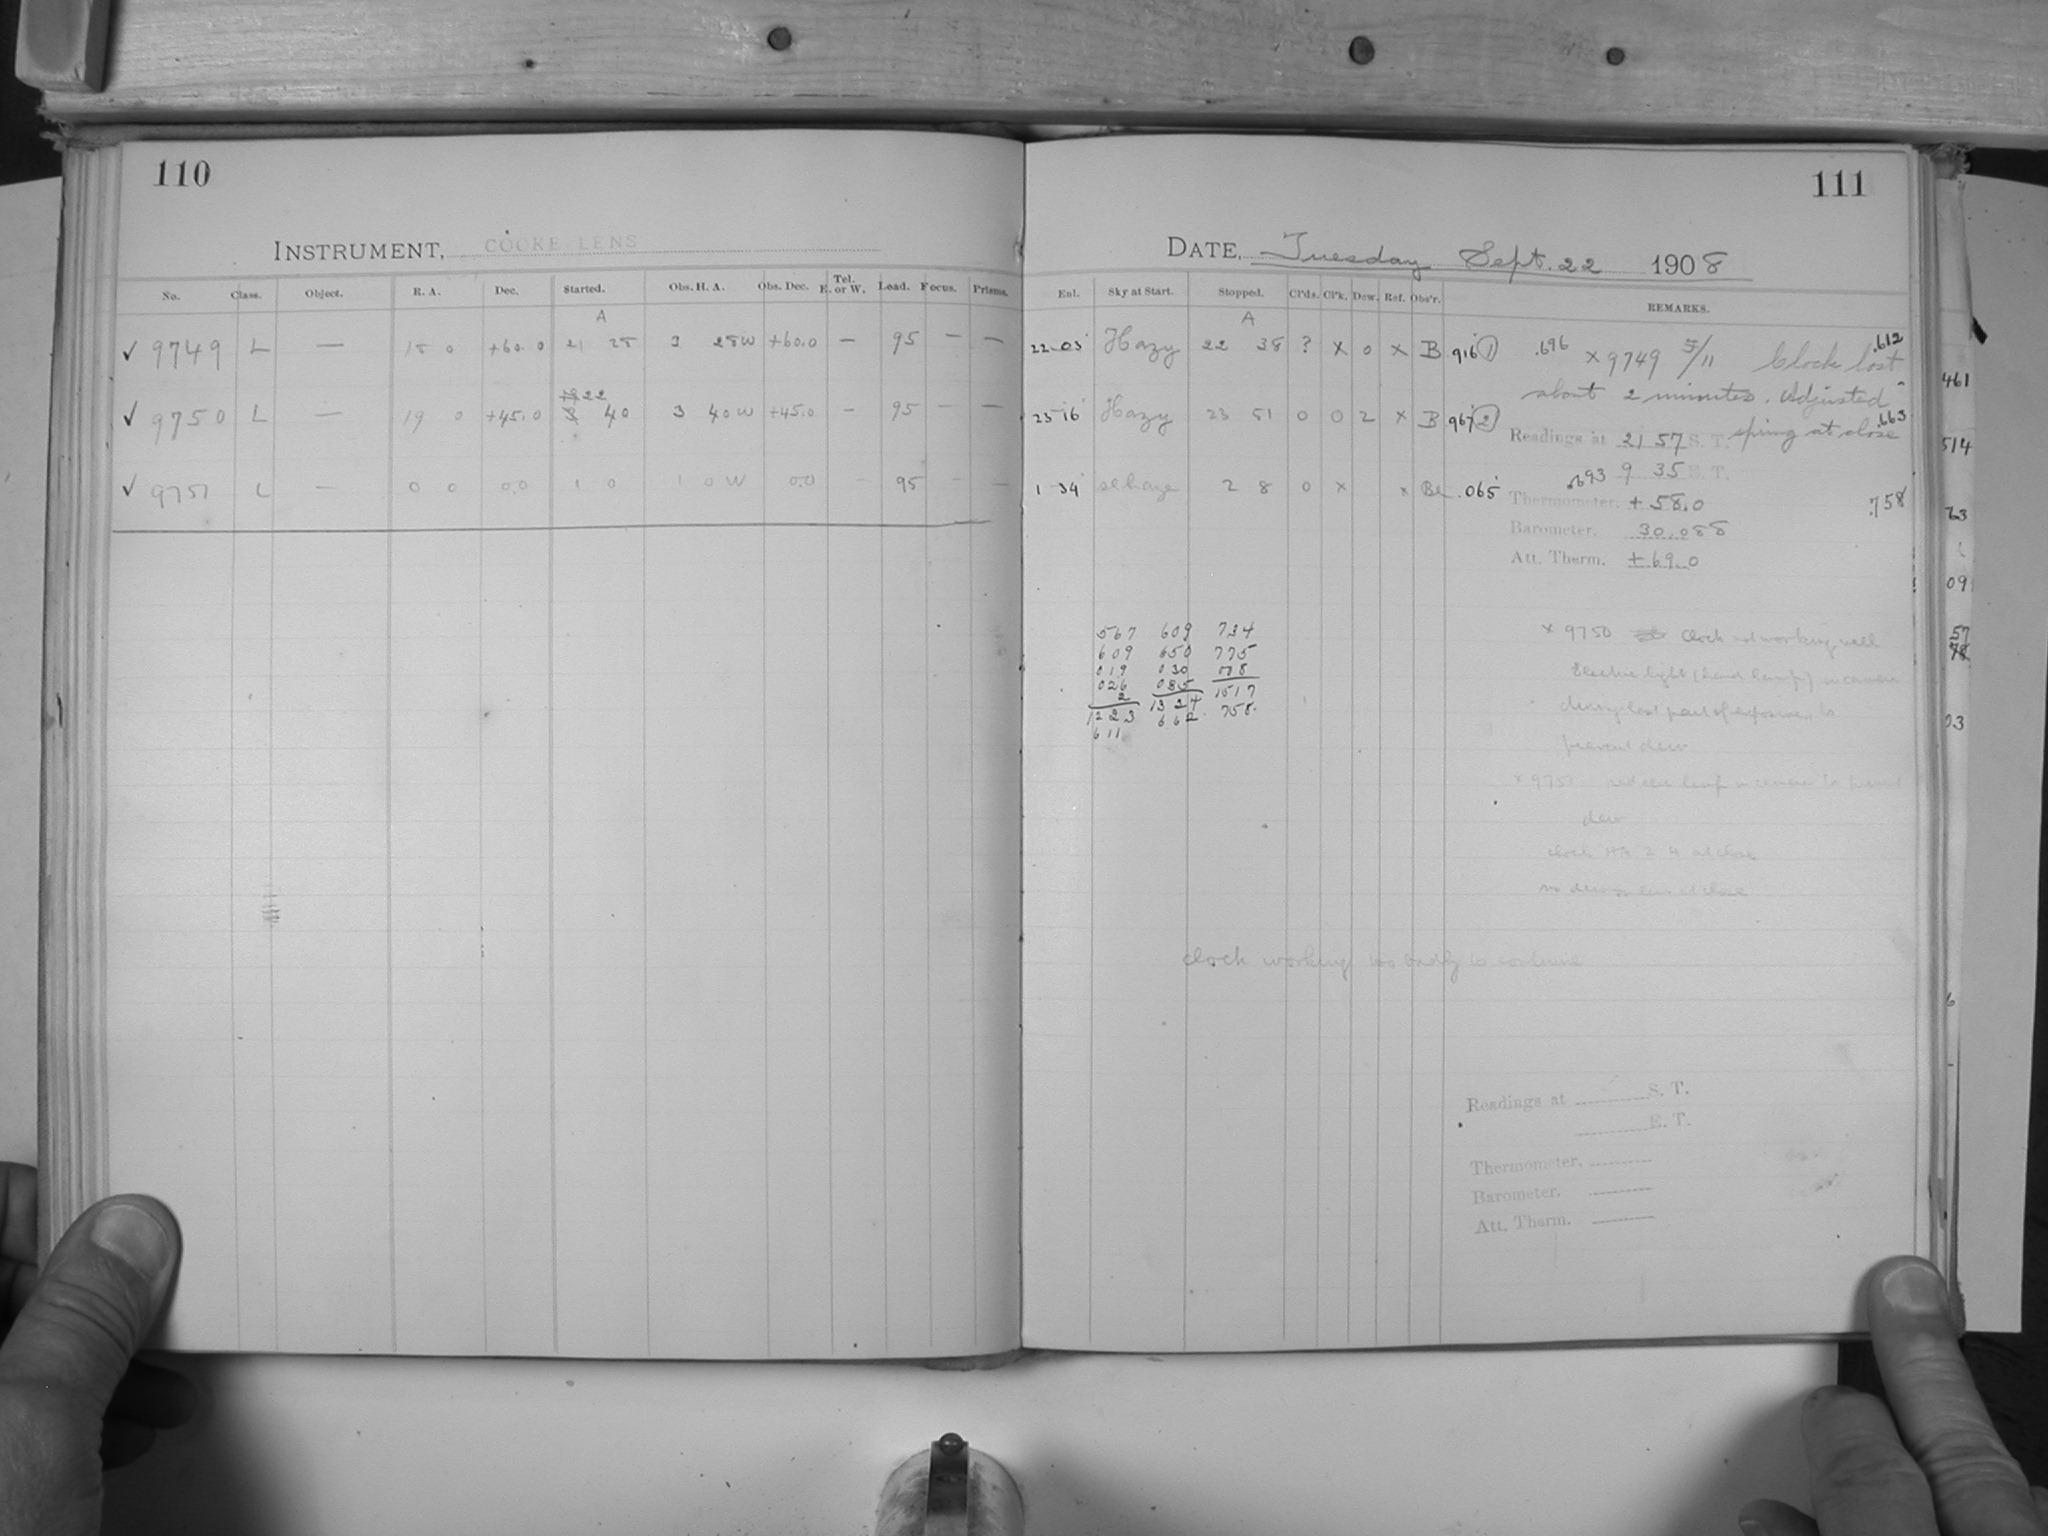 110
INSTRUMENT, COOKE LENS
No. Class. Object. R. A. Dec. Started. Obs. H. A. Obs. Dec. Tel. E. or W. Load. Focus. Prisms.
A
✓ 9749 L — 18 0 +60.0 21 28 3 28W +60.0 — 95 — —
22
✓ 9750 L — 19 0 +45.0 40 3 40W +45.0 — 95 — —
✓ 9751 L — 0 0 0.0 1 0 1 0 W 0.0 — 95 — —
111
DATE, Tuesday Sept. 22 1908
Enl. Sky at Start. Stopped. Cl'ds. Cl'k. Dew. Ref. Obs'r. REMARKS.
A
22-03 Hazy 22 38 ? x 0 x B .916 1 .696 x 9749 5/11 Clock lost .612
about 2 minutes. Adjusted
23-16 Hazy 23 51 0 0 2 x B .967 2 spring at close .663
Readings at 21 57 S. T.
.693 9 35 E. T.
1-34 2 8 0 x x .065
Thermometer. +58.0 .758
Barometer. 30.088
Att. Therm. +69.0
567 609 734
609 650 775
019 030 078
026 085 1517
2 1324 758.
1223 662.
611
x 9750 Clock not working well
Electric light (hand lamp) in camera
during last part of exposure to
prevent dew
x 9751 lamp in camera to prevent
dew
clock at close
at close
clock working too badly to continue
Readings at S. T.
E. T.
Thermometer.
Barometer.
Att. Therm.
461
514
63
09
57
03
6